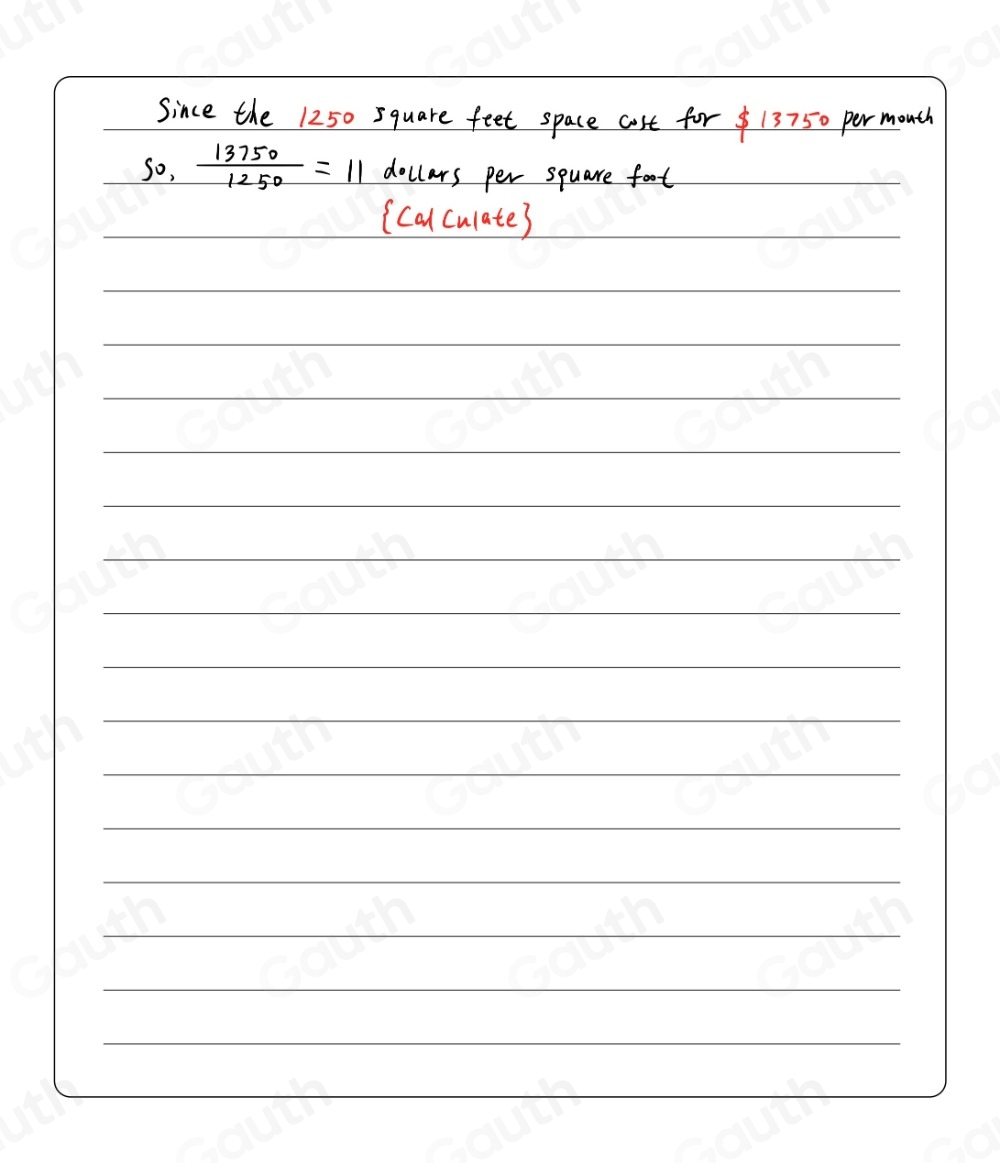 Since the 1250 square feet space cost for $13750 per month
So, 13750/1250 = 11 dollars per square foot
{Calculate}